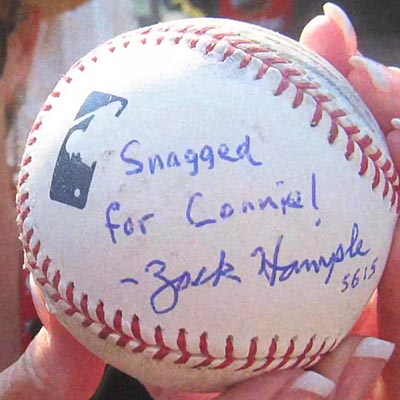 Snagged
for Connie!
-Zack Hample
5615